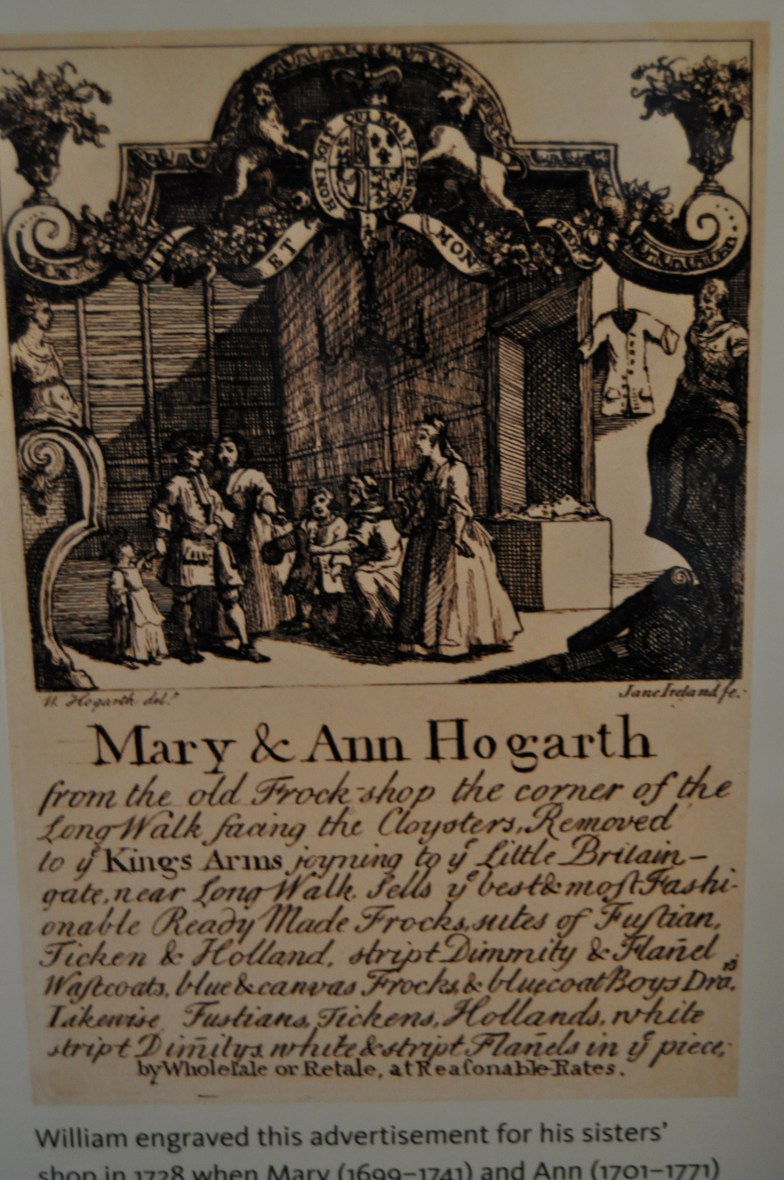 HONI SOIT QUI MAL Y PENSE
DIEU ET MON DROIT
W. Hogarth del.t
Jane Ireland fe:
Mary & Ann Hogarth
from the old Frock-shop the corner of the
Long Walk facing the Cloysters, Removed
to yͤ Kings Arms joyning to yͤ Little Britain-
gate, near Long Walk. Sells yͤ best & most Fashi-
onable Ready Made Frocks, sutes of Fustian,
Ticken & Holland, stript Dimmity & Flañel
Wastcoats, blue & canvas Frocks, & bluecoat Boys Dra.rs
Likewise Fustians, Tickens, Hollands, white
stript Dimĩtys, white & stript Flañels in yͤ piece;
by Wholesale or Retale, at Reasonable Rates.
William engraved this advertisement for his sisters'
shop in 1728 when Mary (1699–1741) and Ann (1701–1771)